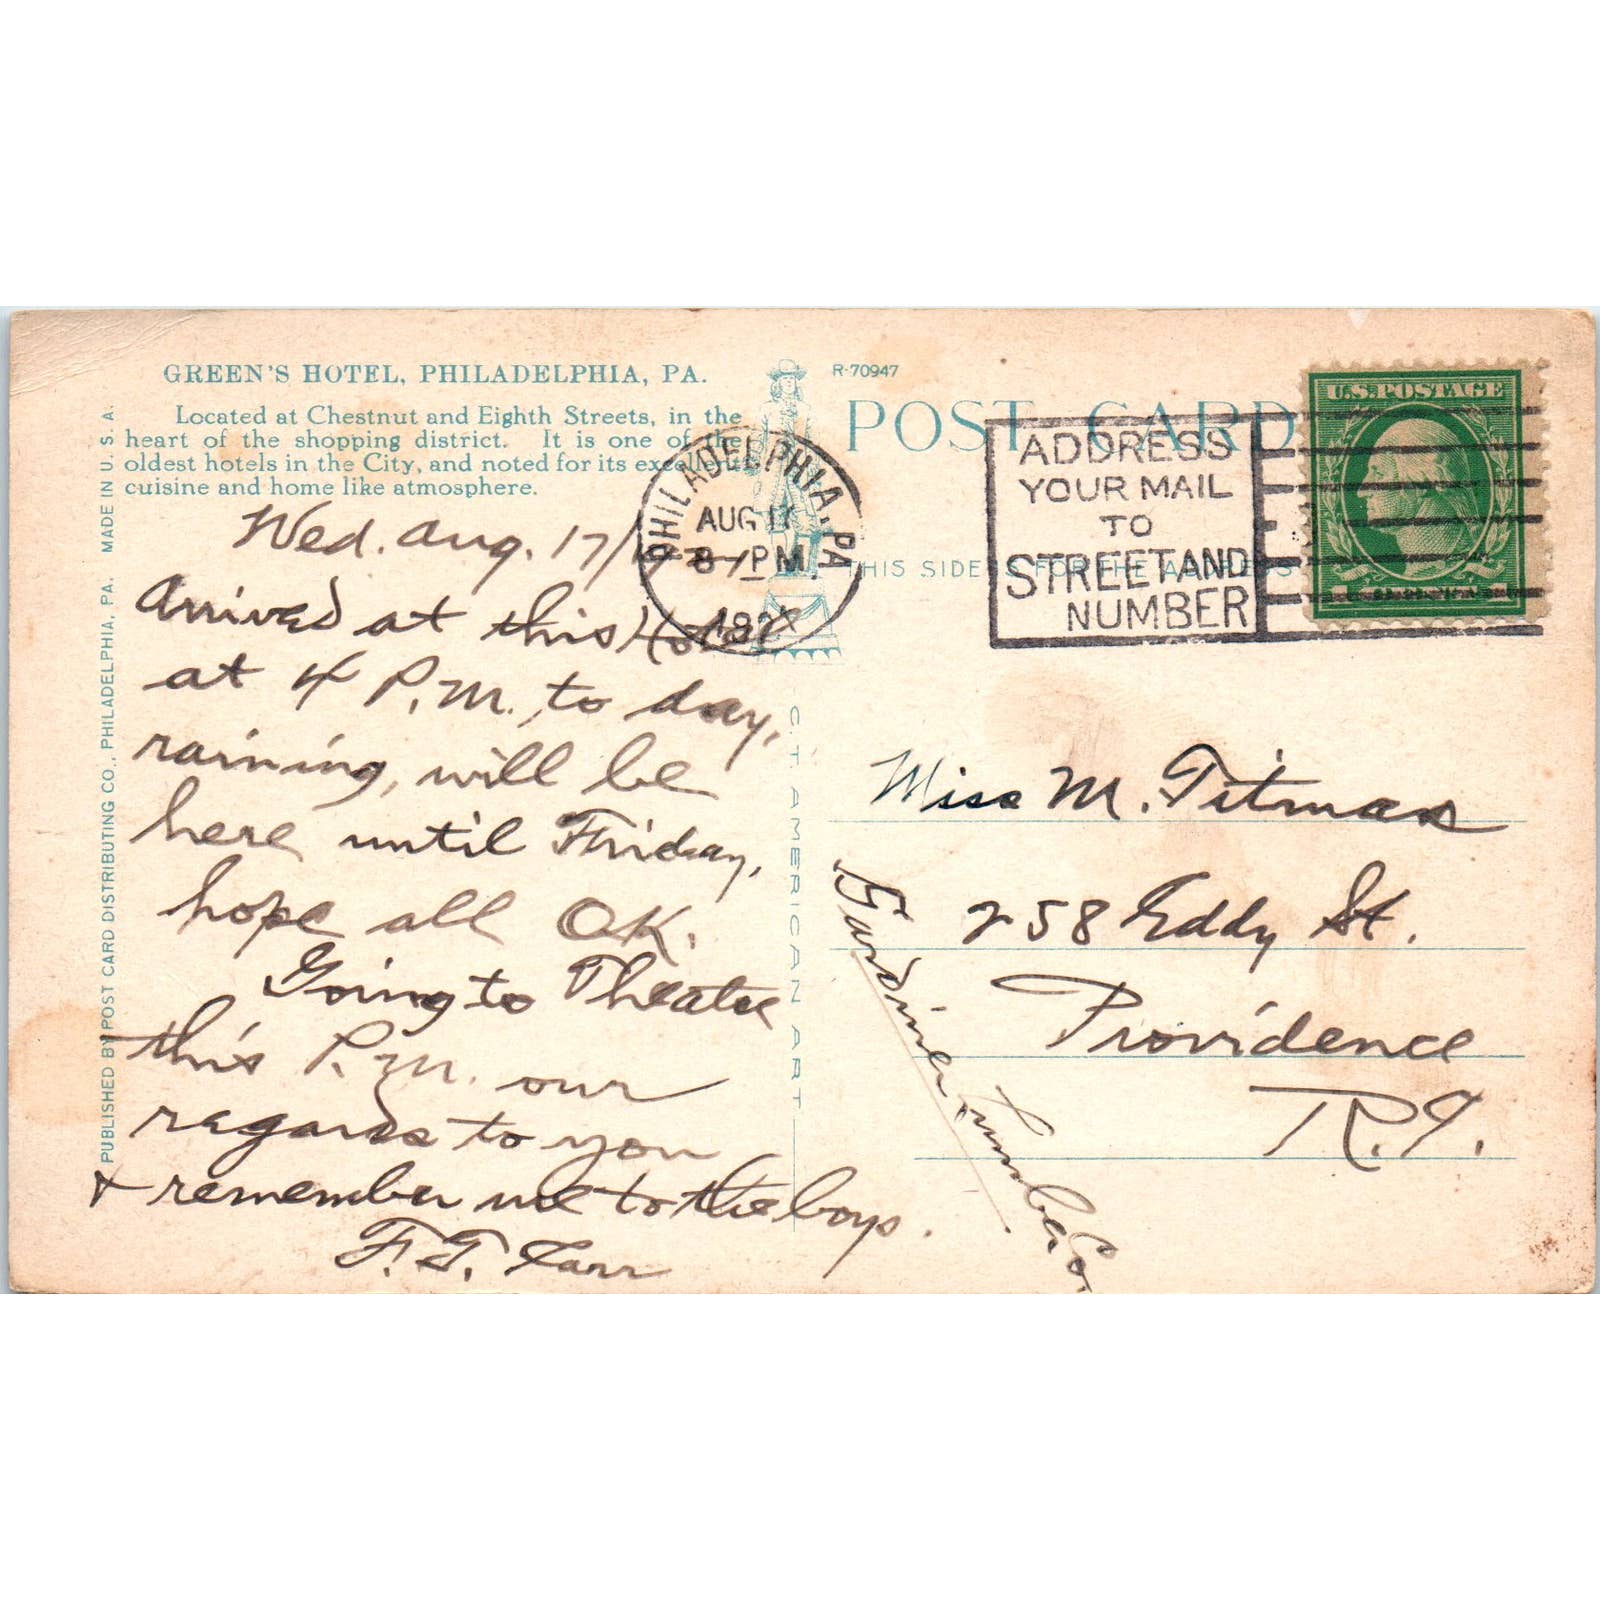 GREEN'S HOTEL, PHILADELPHIA, PA.
Located at Chestnut and Eighth Streets, in the
heart of the shopping district. It is one of the
oldest hotels in the City, and noted for its excellent
cuisine and home like atmosphere.
MADE IN U. S. A.
PUBLISHED BY POST CARD DISTRIBUTING CO., PHILADELPHIA, PA.
Wed. Aug. 17/
Arrived at this Hotel
at 4 P.M. to day,
raining, will be
here until Friday,
hope all OK.
Going to Theatre
this P.M. our
regards to you
& remember me to the boys.
F. G. Farr
PHILADELPHIA, PA
AUG 17
8-PM
R-70947
POST CARD
THIS SIDE IS FOR THE ADDRESS
ADDRESS
YOUR MAIL
TO
STREET AND
NUMBER
U.S. POSTAGE
C.T. AMERICAN ART
Miss M. Titman
258 Eddy St.
Providence
R.I.
Gardiner Lumber Co.